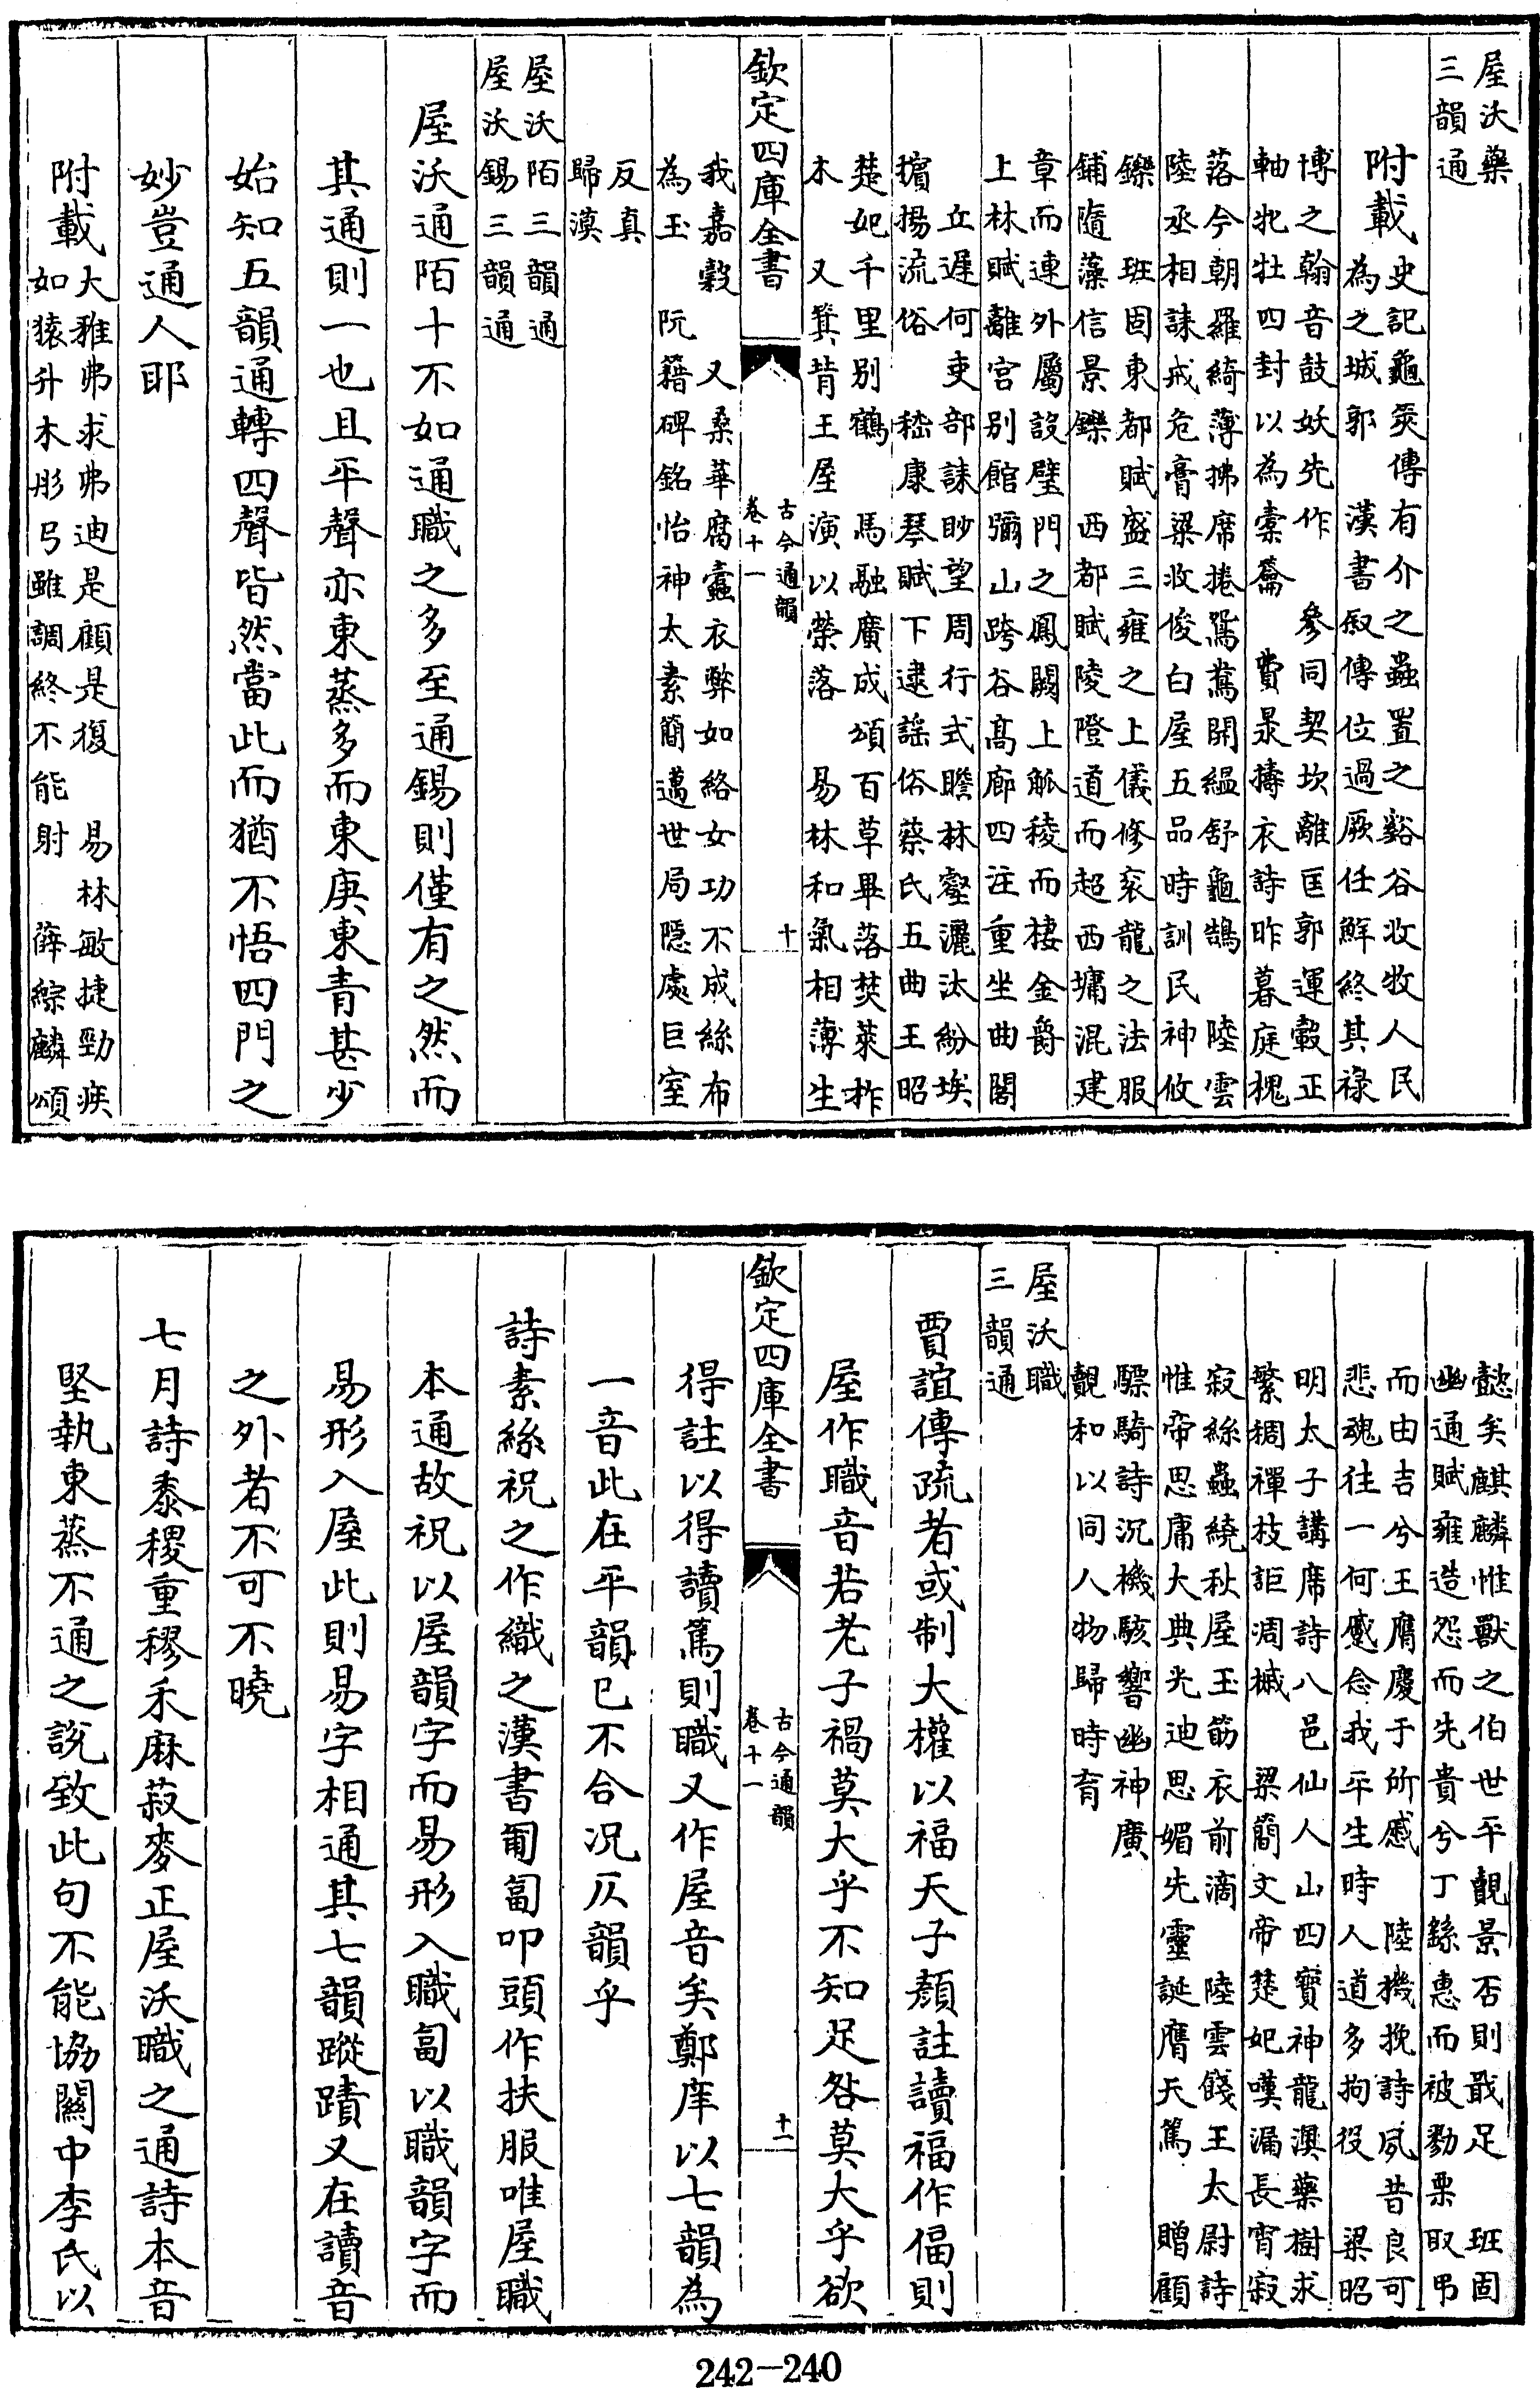 屋沃藥
三韻通
附載
史記龜筴傳有介之蟲置之谿谷收牧人民
為之城郭　漢書叙傳位過厥任鮮終其祿
博之翰音鼓妖先作　參同契坎離匡郭運轂正
軸牝牡四封以為橐籥　費昶擣衣詩昨暮庭槐
落今朝羅綺薄拂席捲鴛鴦開縕舒龜鵠　陸雲
陸丞相誄戒危膏粱收俊白屋五品時訓民神攸
鑠　班固東都賦盛三雍之上儀修衮龍之法服
鋪隨藻信景鑠　西都賦陵隥道而超西墉混建
章而連外屬設璧門之鳳闕上觚稜而棲金爵
上林賦離宮别館彌山跨谷髙廊四注重坐曲閣
丘遲何吏部誄眇望周行式瞻林壑灑汰紛埃
擯揚流俗　嵇康琴賦下逮謡俗蔡氏五曲王昭
楚妃千里别鶴　馬融廣成頌百草畢落焚萊柞
木　又箕背王屋演以滎落　易林和氣相薄生
欽定四庫全書
古今通韻
卷十一
十
我嘉穀　又桑華腐蠹衣弊如絡女功不成絲布
為玉　阮籍碑銘怡神太素簡邁世局隱處巨室
反真
歸漠
屋沃陌三韻通
屋沃錫三韻通
屋沃通陌十不如通職之多至通錫則僅有之然而
其通則一也且平聲亦東蒸多而東庚東青甚少
始知五韻通轉四聲皆然當此而猶不悟四門之
妙豈通人耶
附載
大雅弗求弗迪是顧是復　易林敏捷勁疾
如猿升木彤弓雖調終不能射　薛綜麟頌
懿矣麒麟惟獸之伯世平覿景否則戢足　班固
幽通賦雍造怨而先貴兮丁繇惠而被戮栗取弔
而由吉兮王膺慶于所慼　陸機挽詩夙昔良可
悲魂往一何慼念我平生時人道多拘役　梁昭
明太子講席詩八邑仙人山四寶神龍澳藥樹求
繁稠禪枝詎凋摵　梁簡文帝楚妃嘆漏長宵寂
寂絲蟲繞秋屋玉筯衣前滴　陸雲餞王太尉詩
惟帝思庸大典光迪思媚先靈誕膺天篤　贈顧
驃騎詩沉機駭響幽神廣
覿和以同人物歸時育
屋沃職
三韻通
賈誼傳疏者或制大權以福天子顏註讀福作偪則
屋作職音若老子禍莫大乎不知足咎莫大乎欲
欽定四庫全書
古今通韻
卷十一
十一
得註以得讀篤則職又作屋音矣鄭庠以七韻為
一音此在平韻已不合况仄韻乎
詩素絲祝之作織之漢書匍匐叩頭作扶服唯屋職
本通故祝以屋韻字而易形入職匐以職韻字而
易形入屋此則易字相通其七韻蹤蹟又在讀音
之外者不可不曉
七月詩黍稷重穋禾麻菽麥正屋沃職之通詩本音
堅執東蒸不通之說致此句不能協關中李氏以
242—240